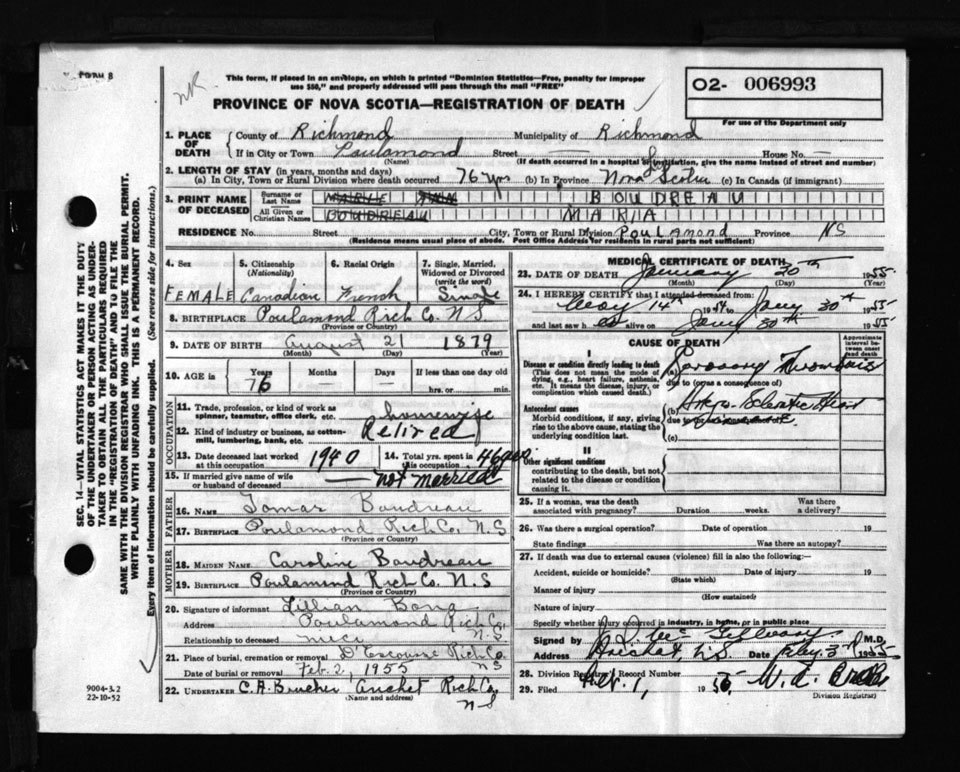 FORM B
NR.
This form, if placed in an envelope, on which is printed "Dominion Statistics—Free, penalty for improper
use $50," and properly addressed will pass through the mail "FREE"
PROVINCE OF NOVA SCOTIA—REGISTRATION OF DEATH
02- 006993
For use of the Department only
1. PLACE OF DEATH County of Richmond Municipality of Richmond
If in City or Town Poulamond Street — House No. —
(Name) (If death occurred in a hospital or institution, give the name instead of street and number)
2. LENGTH OF STAY (in years, months and days)
(a) In City, Town or Rural Division where death occurred 76 yrs (b) in Province Nova Scotia (c) In Canada (if immigrant)
3. PRINT NAME OF DECEASED
Surname or Last Name BOUDREAU
All Given or Christian Names BOUDREAU MARIA
RESIDENCE No. Street City, Town or Rural Division Poulamond Province NS
(Residence means usual place of abode. Post Office Address for residents in rural parts not sufficient)
4. Sex 5. Citizenship (Nationality) 6. Racial Origin 7. Single, Married, Widowed or Divorced (write the word)
FEMALE Canadian French Single
8. BIRTHPLACE Poulamond Rich Co. N.S
(Province or Country)
9. DATE OF BIRTH August 21 1879
(Month) (Day) (Year)
10. AGE in Years Months Days If less than one day
76 — — hrs. or min.
OCCUPATION
11. Trade, profession, or kind of work as spinner, teamster, office clerk, etc. housewife
12. Kind of industry or business, as cotton-mill, lumbering, bank, etc. Retired
13. Date deceased last worked at this occupation 1940 14. Total yrs. spent in this occupation 46 years
15. If married give name of wife or husband of deceased — not married
FATHER
16. NAME Boudreau
17. BIRTHPLACE Poulamond Rich Co. N.S
(Province or Country)
MOTHER
18. MAIDEN NAME Caroline Boudreau
19. BIRTHPLACE Poulamond Rich Co. N.S
(Province or Country)
20. Signature of informant Lillian Bona
Address Poulamond Rich Co. N.S.
Relationship to deceased niece
21. Place of burial, cremation or removal D'Escousse Rich Co. NS
Date of burial or removal Feb. 2, 1955
22. UNDERTAKER C. A. Boucher Arichat Rich Co. N-S
(Name and address)
MEDICAL CERTIFICATE OF DEATH
23. DATE OF DEATH January 30th 1955
(Month) (Day) (Year)
24. I HEREBY CERTIFY that I attended deceased from:
14th 1954 to Jany 30th 1955
and last saw h er alive on Jany 30th 1955
CAUSE OF DEATH
Approximate interval between onset and death
I
Disease or condition directly leading to death
(This does not mean the mode of dying, e.g., heart failure, asthenia, etc. It means the disease, injury, or complication which caused death.)
(a) Coronary Thrombosis
due to (or as a consequence of)
Antecedent causes
Morbid conditions, if any, giving rise to the above cause, stating the underlying condition last.
(b)
due to
(c)
II
Other significant conditions
contributing to the death, but not related to the disease or condition causing it.
25. If a woman, was the death associated with pregnancy? Duration weeks. Was there a delivery?
26. Was there a surgical operation? Date of operation 19
State findings Was there an autopsy?
27. If death was due to external causes (violence) fill in also the following:—
Accident, suicide or homicide? Date of injury 19
(State which)
Manner of injury
(How sustained)
Nature of injury
Specify whether injury occurred in industry, in home, or in public place
Signed by M.D.
Address Arichat, N.S. Date Feby. 3 1955
28. Division Registrar's Record Number
29. Filed Feb. 1, 1955
Division Registrar
SEC. 14—VITAL STATISTICS ACT MAKES IT THE DUTY
OF THE UNDERTAKER OR PERSON ACTING AS UNDER-
TAKER TO OBTAIN ALL THE PARTICULARS REQUIRED
IN THE "REGISTRATION OF DEATH" AND TO FILE THE
SAME WITH THE DIVISION REGISTRAR WHO SHALL ISSUE THE BURIAL PERMIT.
WRITE PLAINLY WITH UNFADING INK. THIS IS A PERMANENT RECORD.
Every item of information should be carefully supplied. (See reverse side for instructions.)
9004-3.2
22-10-52